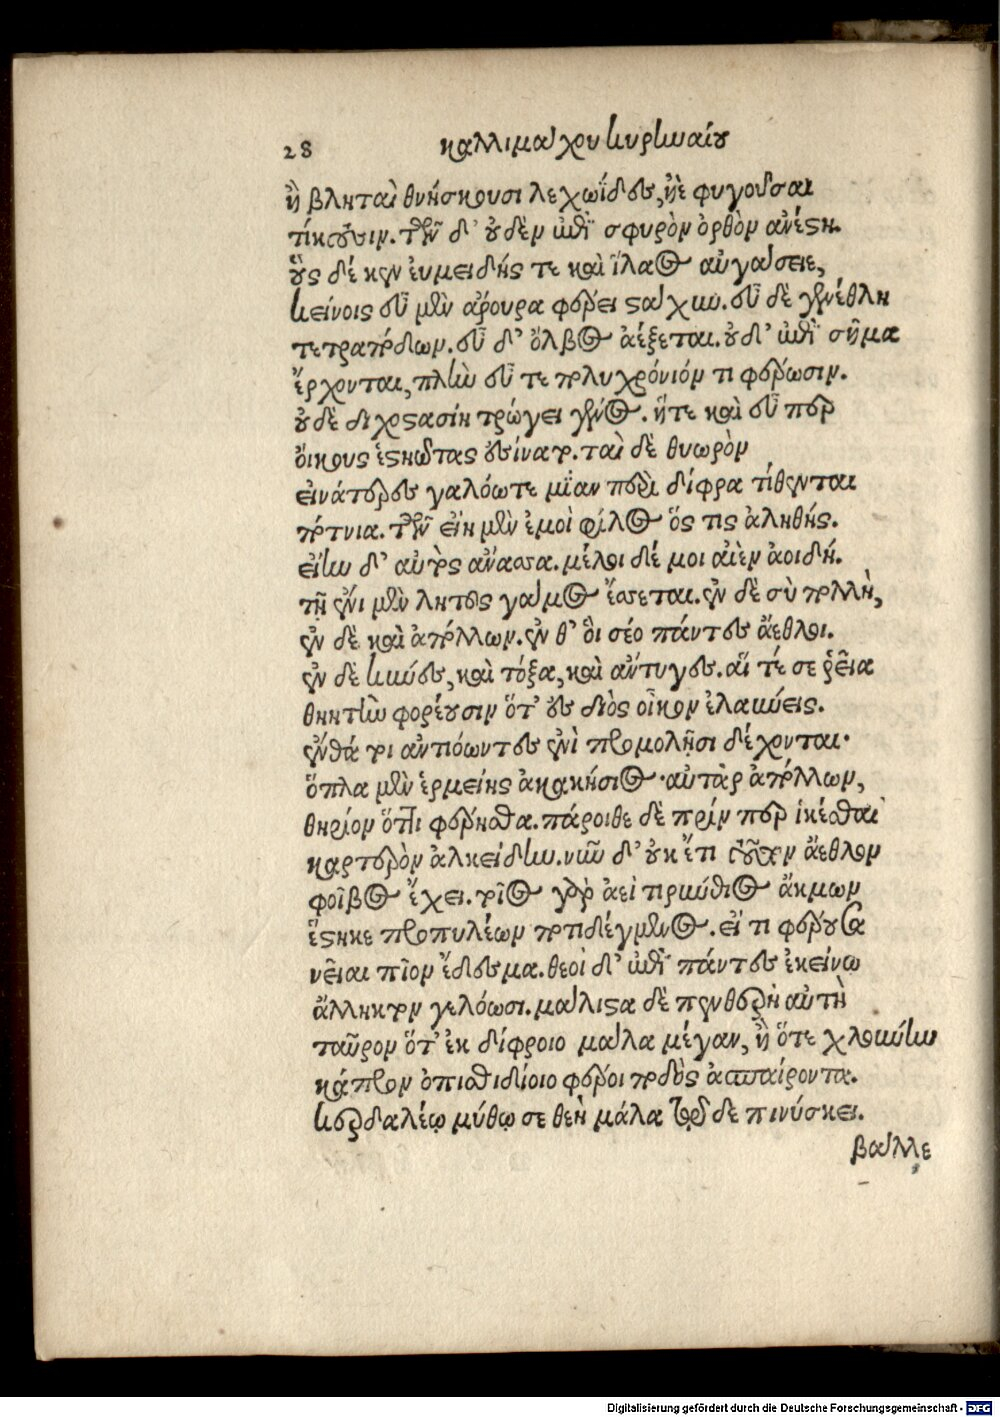 28 καλλιμάχου κυρηναίου
ἢ βληταὶ θνήσκουσι λεχωΐδες, ἠὲ φυγοῦσαι
τίκτουσιν. τῶν δ' οὐδὲν ἐπὶ σφυρὸν ὀρθὸν ἀνέστη.
οὓς δέ κεν ἐυμειδής τε καὶ ἵλαος αὐγάσειε,
κείνοις εὖ μὲν ἄρουρα φέρει στάχυν. εὖ δὲ γενέθλη
τετραπόδων. εὖ δ' ὄλβος ἀέξεται. οὐδ' ἐπὶ σῆμα
ἔρχονται, πλὴν εὖ τε πολυχρόνιόν τι φέρωσιν.
οὐδὲ διχοστασίη τρώγει γένος. ἥτε καὶ εὖ περ
οἴκους ἑστηῶτας ἐσίνατο. ταὶ δὲ θυωρὸν
εἰνάτερες γαλόωτε μίαν περὶ δίφρα τίθενται
πότνια. τῶν εἴη μὲν ἐμοὶ φίλος ὅς τις ἀληθής.
εἴην δ' αὐτὸς ἄνασσα. μέλοι δέ μοι αἰὲν ἀοιδή.
τῇ ἔνι μὲν λητοῦς γάμος ἔσσεται. ἐν δὲ σὺ πολλὴ,
ἐν δὲ καὶ ἀπόλλων. ἐν θ' οἳ σέο πάντες ἄεθλοι.
ἐν δὲ κύνες, καὶ τόξα, καὶ ἄντυγες. αἵ τέ σε ῥεῖα
θηητὴν φορέουσιν ὅτ' ἐς διὸς οἶκον ἐλαύνεις.
ἔνθά τοι ἀντιόωντες ἐνὶ προμολῇσι δέχονται·
ὅπλα μὲν ἑρμείης ἀκακήσιος· αὐτὰρ ἀπόλλων,
θηρίον ὅττι φέρησθα. πάροιθε δὲ πρίν περ ἱκέσθαι
καρτερὸν ἀλκείδην. νῦν δ' οὐκ ἔτι τοῦτον ἄεθλον
φοῖβος ἔχει. τοῖος γὰρ ἀεὶ τιρύνθιος ἄκμων
ἕστηκε προπυλέων ποτιδέγμενος. εἴ τι φέρουσα
νεῖαι πῖον ἔδεσμα. θεοὶ δ' ἐπὶ πάντες ἐκείνω
ἄλληκτον γελόωσι. μάλιστα δὲ πενθερὴ αὐτὴ
ταῦρον ὅτ' ἐκ δίφροιο μάλα μέγαν, ἢ ὅτε χλούνην
κάπρον ὀπισθιδίοιο φέροι ποδὸς ἀσπαίροντα.
κερδαλέῳ μύθῳ σε θεὴ μάλα τῷδε πινύσκει.
βάλλε
Digitalisierung gefördert durch die Deutsche Forschungsgemeinschaft - DFG